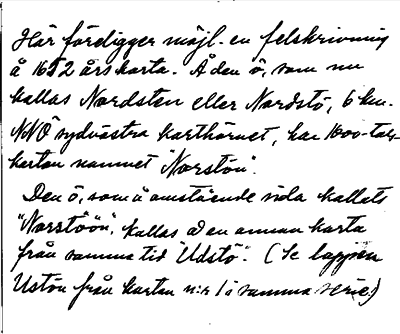 Här föreligger möjl. en felskrivning
å 1652 års karta. Å den ö, som nu
kallas Nordsten eller Nordstö, 6 km.
NNÖ sydvästra karthörnet, har 1800-tals-
kartan namnet "Norstön".
Den ö, som å omstående sida kallats
"Norstöön", kallas å en annan karta
från samma tid "Udstö". (Se lappen
Ustön från kartan n:r 1 i samma serie.)